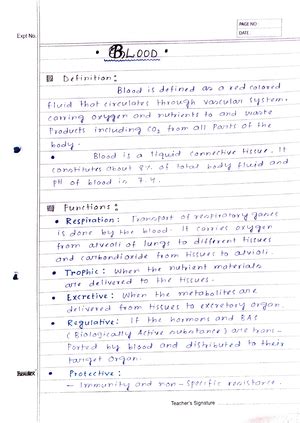 PAGE NO:
DATE:
Expt No.
• BLOOD •
Definition:
Blood is defined as a red colored
fluid that circulates through vascular system.
carring oxygen and nutrients to and waste
Products including CO2 from all Parts of the
body.
• Blood is a liquid connective tissue. It
constitutes about 8% of total body fluid and
pH of blood is 7.4.
Functions:
• Respiration: Transport of respiratory gases
is done by the blood. It carries oxygen
from alveoli of lungs to different tissues
and carbondioxide from tissues to alvioli.
• Trophic: When the nutrient materials
are delivered to the tissues.
• Excretive: When the metabolites are
delivered from tissues to excretory organ.
• Regulative: If the hormons and BAS
(Biologically Active substance) are trans-
ported by blood and distributed to their
target organ.
• Protective:
- Immunity and non-specific resistance.
Teacher's Signature